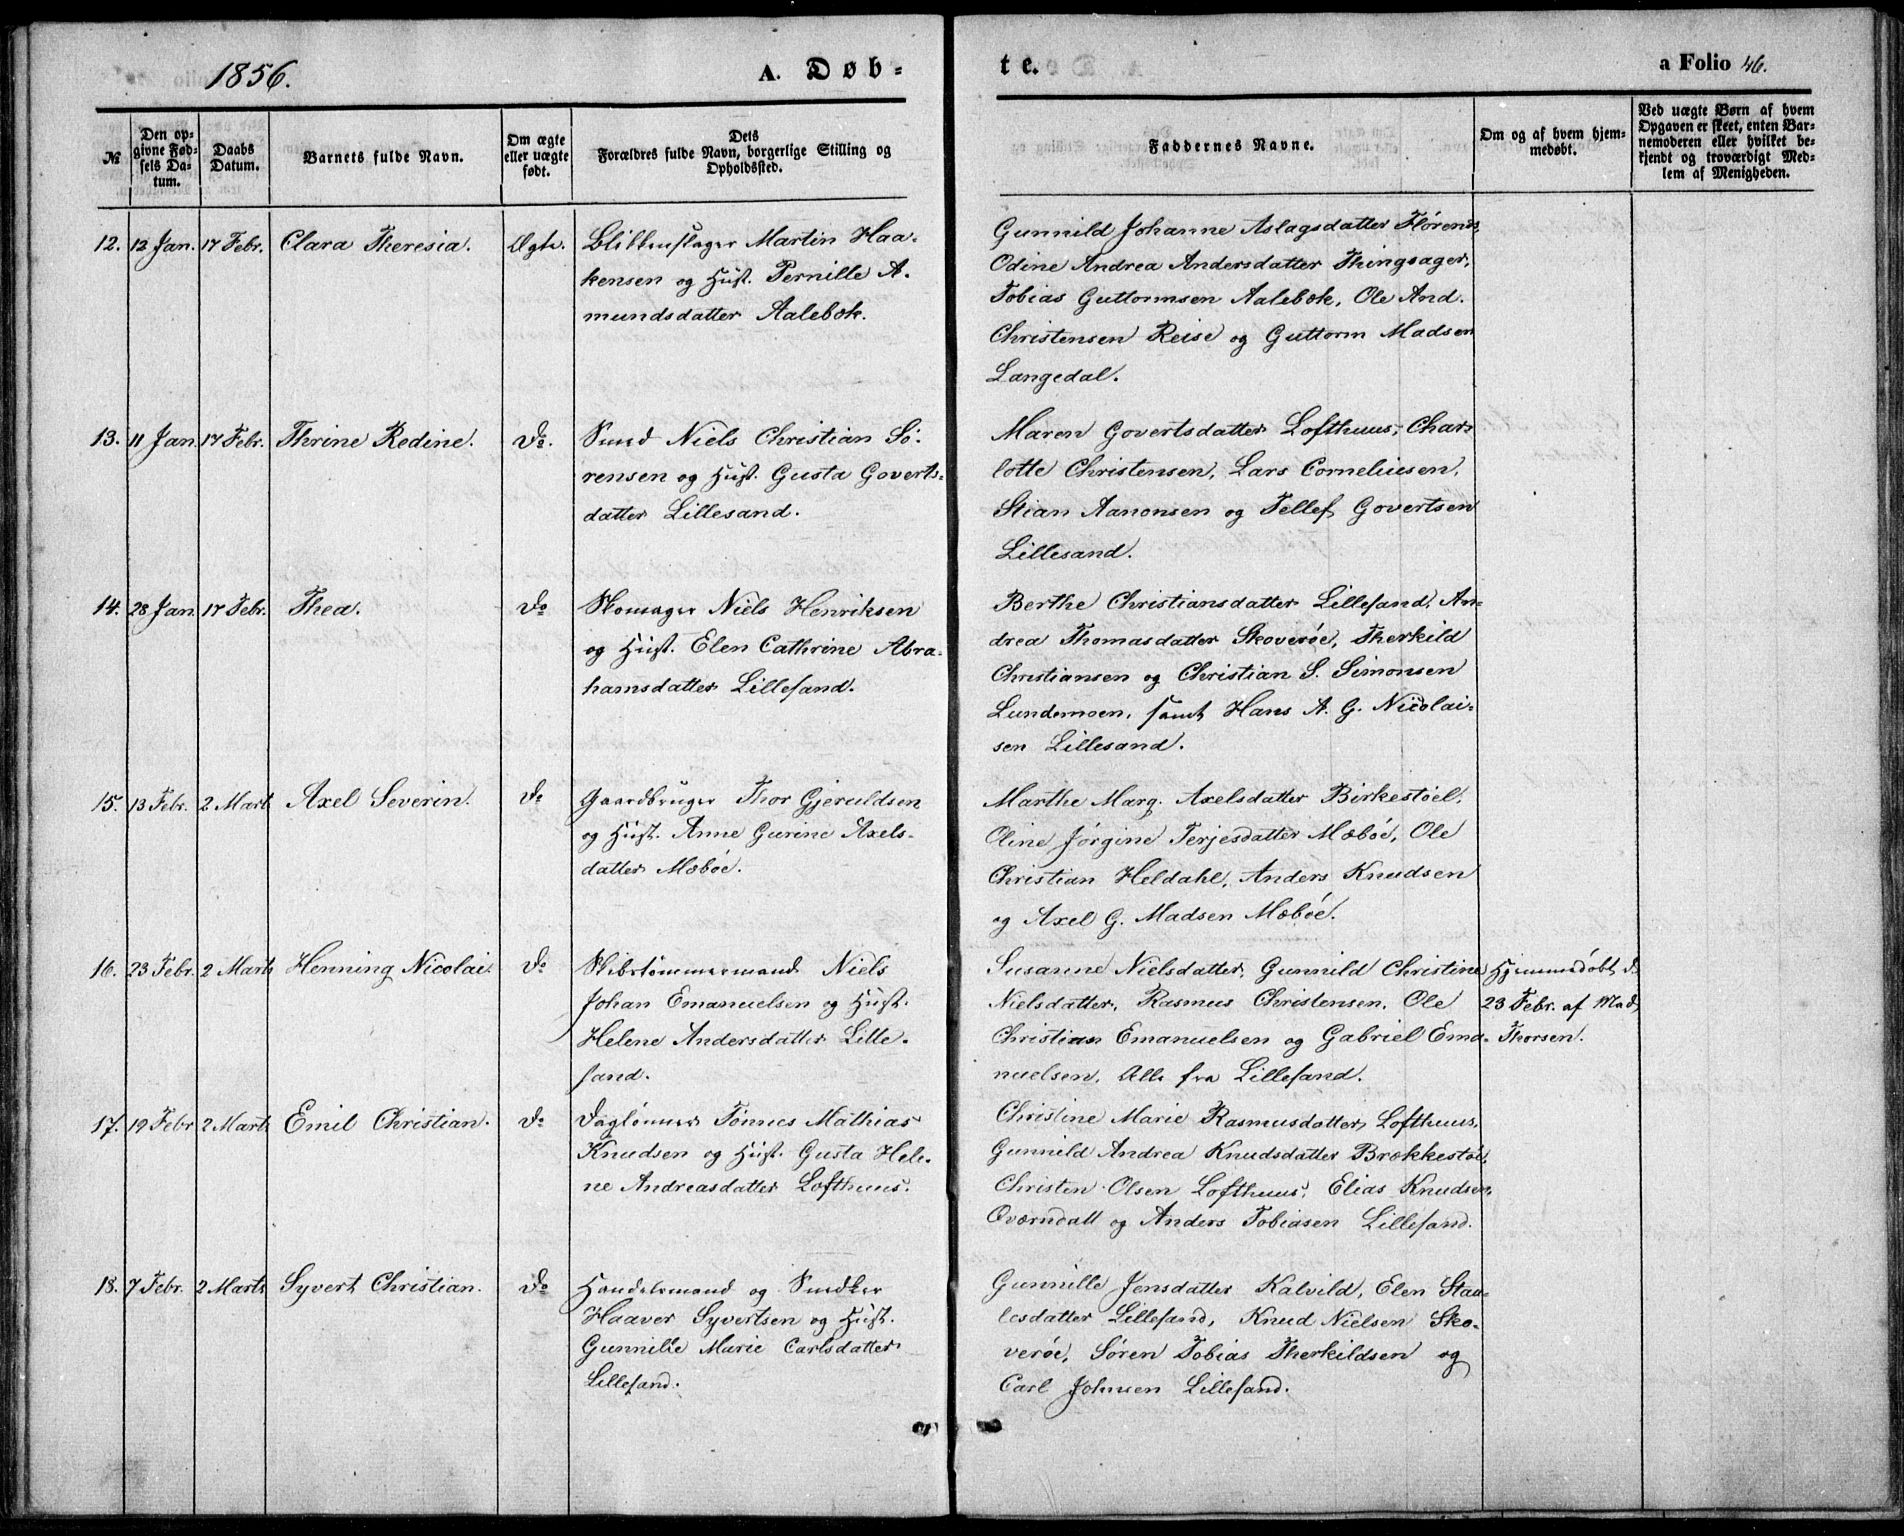 1856.
A. Døb-
te.
a Folio 46.
№
Den op-
givne Fød-
sels Da-
tum.
Daabs
Datum.
Barnets fulde Navn.
Om ægte
eller uægte
født.
Dets
Forældres fulde Navn, borgerlige Stilling og
Opholdssted.
Faddernes Navne.
Om og af hvem hjem-
medøbt.
Ved uægte Børn af hvem
Opgaven er skeet, enten Bar-
nemoderen eller hvilket be-
kjendt og troværdigt Med-
lem af Menigheden.
12. 12 Jan. 17 Febr. Clara Theresia. Ægte.
Blikkenslager Martin Haa-
kensen og Hust. Pernille A-
mundsdatter Aalebæk.
Gunnild Johanne Aslagsdatter Flørenes,
Odine Andrea Andersdatter Thingsager,
Tobias Guttormsen Aalebæk, Ole And.
Christensen Reise og Guttorm Madsen
Langedal.
13. 11 Jan. 17 Febr. Thrine Redine. Do.
Smed Niels Christian Sö-
rensen og Hust. Gusta Goverts-
datter Lillesand.
Maren Govertsdatter Lofthuus, Char-
lotte Christensen, Lars Corneliusen,
Stian Aanonsen og Tellef Govertsen
Lillesand.
14. 28 Jan. 17 Febr. Thea. Do
Skomager Niels Henriksen
og Hust. Elen Cathrine Abra-
hamsdatter Lillesand.
Berthe Christiansdatter Lillesand, An-
drea Thomasdatter Skoverøe, Therkild
Christiansen og Christian S. Simonsen
Lundemoen, samt Hans A. G. Nicolai-
sen Lillesand.
15. 13 Febr. 2 Marts Axel Severin. Do
Gaardbruger Thor Gjeruldsen
og Hust. Anne Gurine Axels-
datter Mæbøe.
Marthe Marg. Axelsdatter Birkestøel,
Oline Jørgine Terjesdatter Mæbøe, Ole
Christian Heldahl, Anders Knudsen
og Axel G. Madsen Mæbøe.
16. 23 Febr. 2 Marts Henning Nicolai. Do
Skibstømmermand Niels
Johan Emanuelsen og Hust.
Helene Andersdatter Lille-
sand.
Susanne Nielsdatter, Gunnild Christine
Nielsdatter, Rasmus Christensen, Ole
Christian Emanuelsen og Gabriel Ema-
nuelsen, Alle fra Lillesand.
Hjemmedöbt d.
23 Febr. af Mad.
Thorsen.
17. 19 Febr 2 Marts Emil Christian. Do
Daglønner Tönnes Mathias
Knudsen og Hust. Gusta Hele-
ne Andreasdatter Lofthuus.
Christine Marie Rasmusdatter Lofthuus,
Gunnild Andrea Knudsdatter Brækkestøe,
Christen Olsen Lofthuus, Elias Knudsen
Oværndall og Anders Tobiasen Lillesand.
18. 7 Febr. 2 Marts Syvert Christian. Do
Handelsmand og Snedker
Haaver Syvertsen og Hust.
Gunnille Marie Carlsdatter
Lillesand.
Gunnille Jensdatter Kalvild, Elen Staa-
lesdatter Lillesand, Knud Nielsen Sko-
verøe, Søren Tobias Therkildsen og
Carl Johnsen Lillesand.